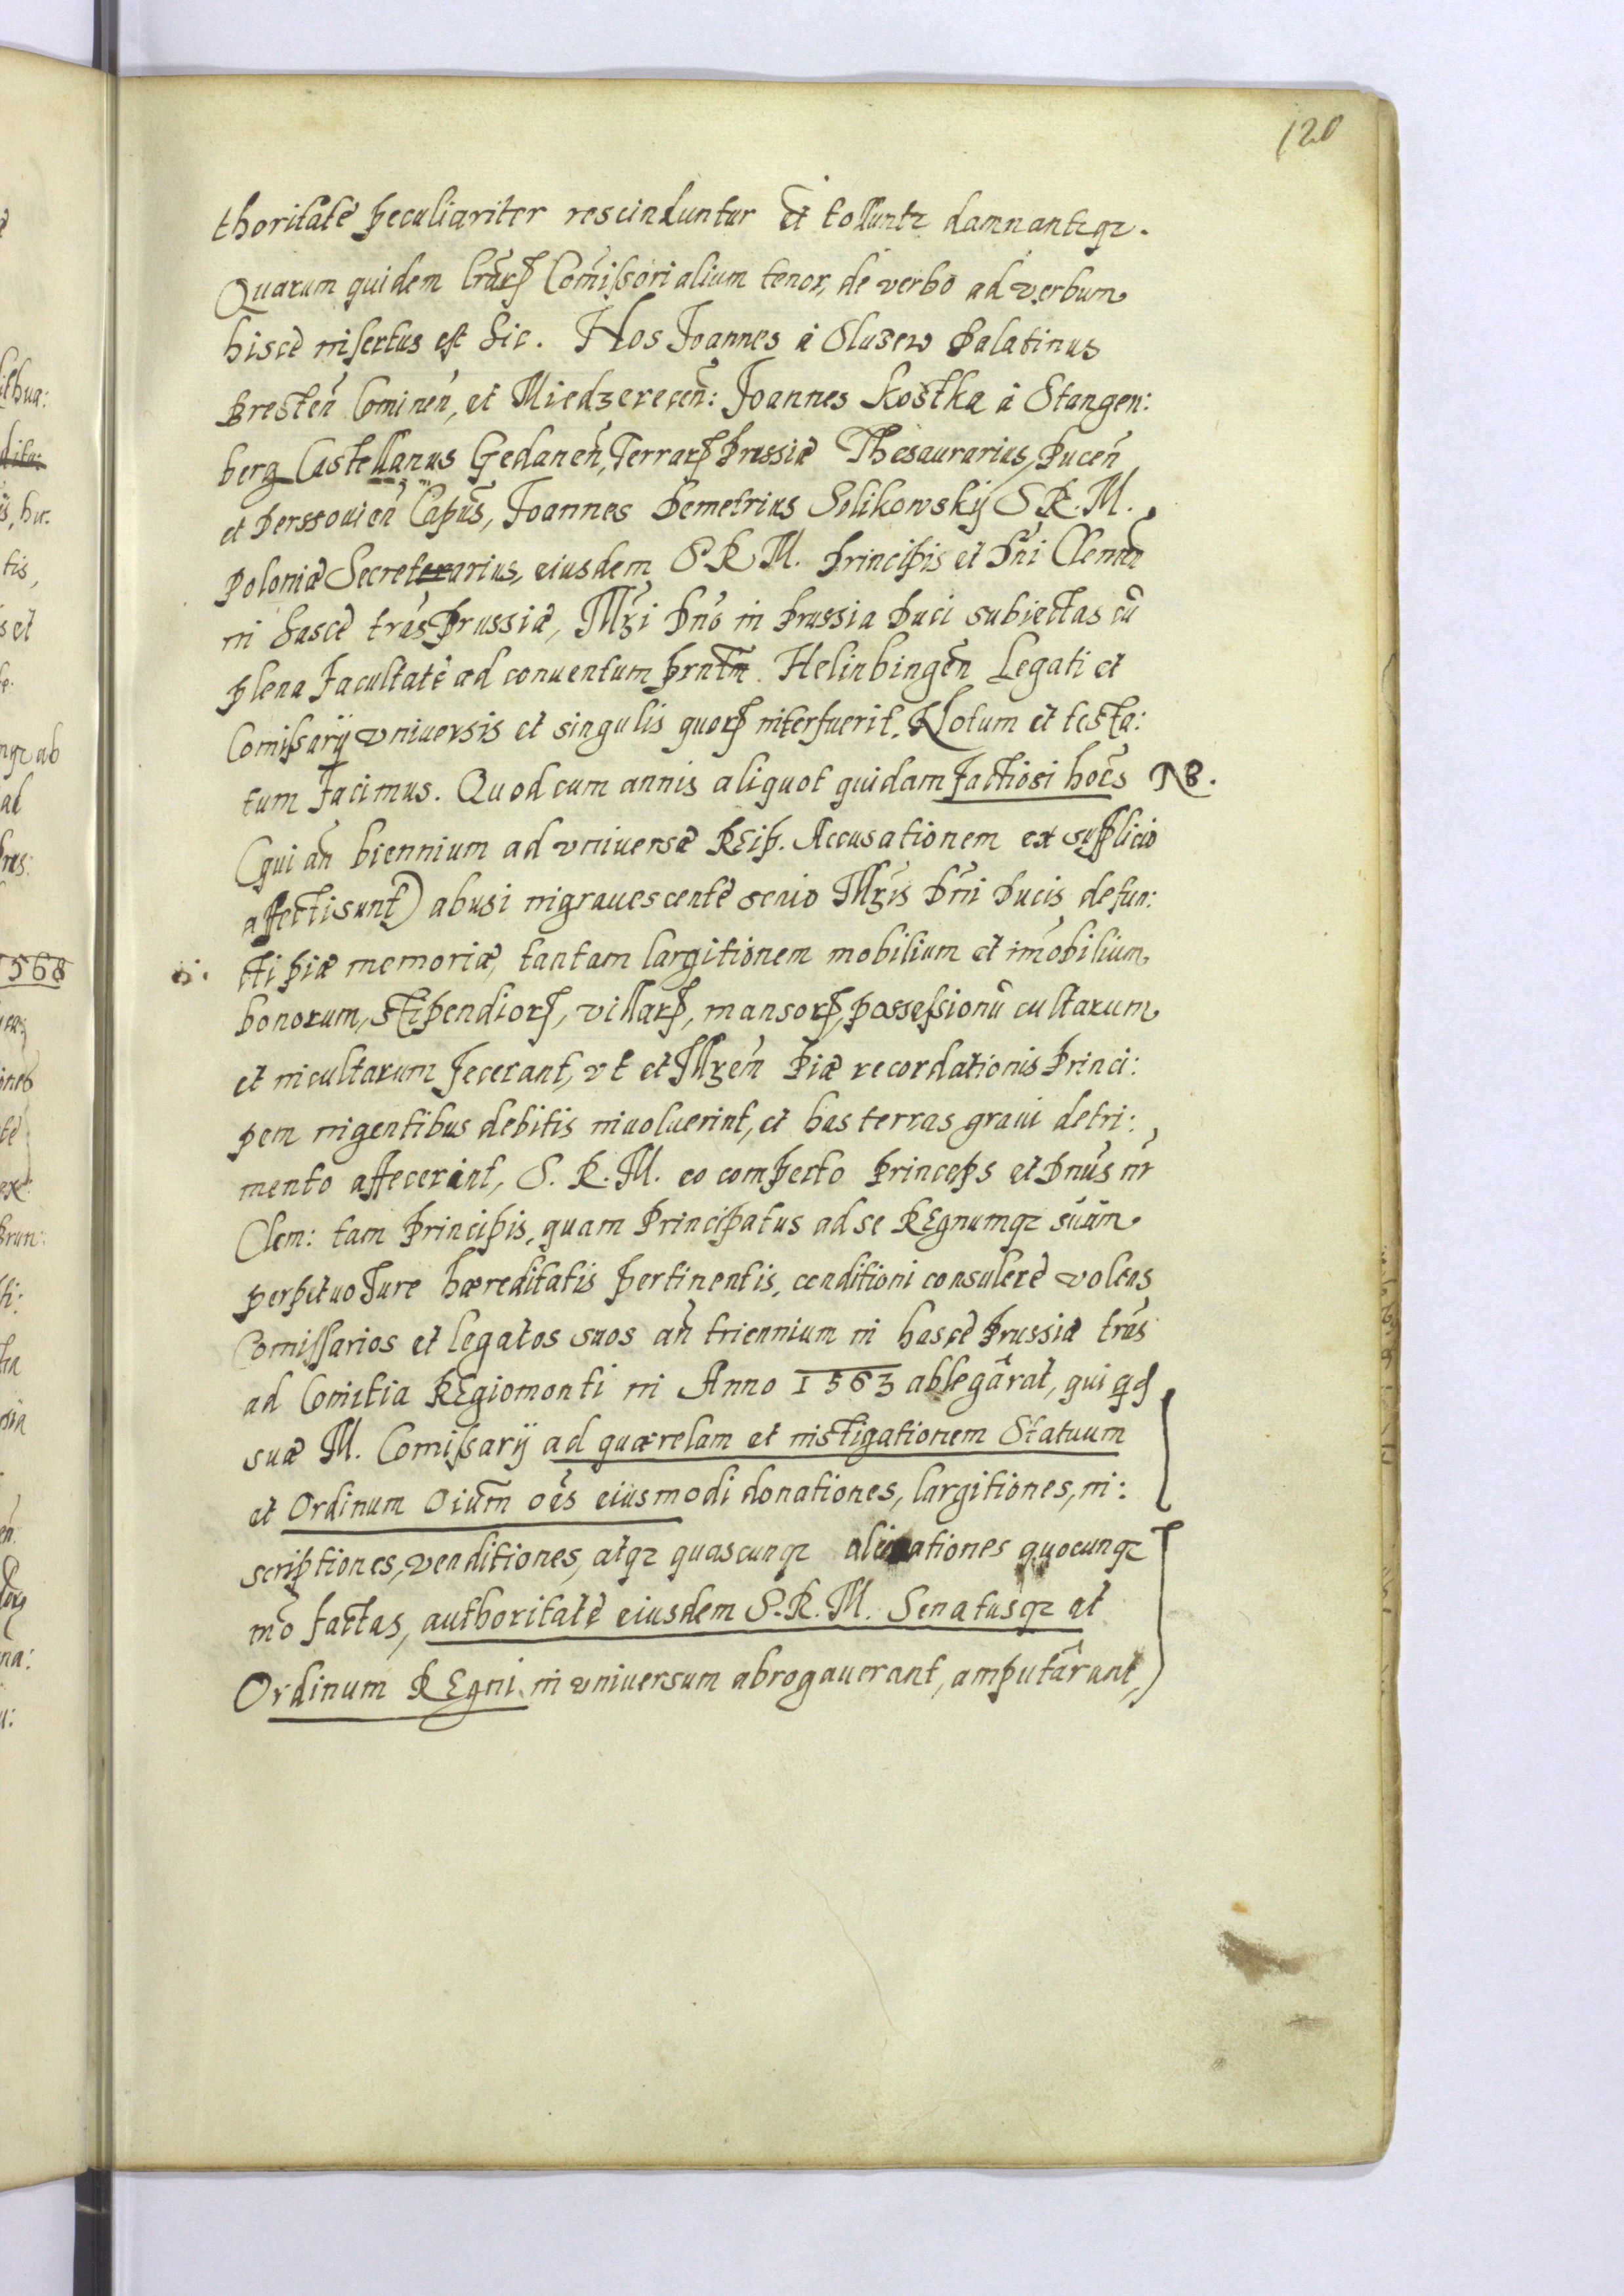 120
thoritate peculiariter rescinduntur et tollunt2 damnantq2.
Quarum quidem lrarꝝ Comissorialium tenor, de verbo ad verbum
hisce insertus est sic. Nos Joannes à Sluzew Palatinus
Bresten̄ Coninen̄, et Miedzerecen̄: Joannes Kostka à Stangen:
berg Castellanus Gedanen̄, Terrarꝝ Prussiæ Thesaurarius, Pucen̄
et Derssouien̄ Capn̄s, Joannes Demetrius Solikowskÿ S R. M.
Poloniæ Secretarius, eiusdem S. R M. Principis et Dn̄i Clemen̄
in hasce trās Prussiæ, Illr̄i Dnō in Prussia Duci subiectas cū
plena facultate ad conuentum prn̄tm Helinbingen̄ Legati et
Comissarij vniuersis et singulis quorꝝ interfuerit. Notum et testa:
tum facimus. Quod cum annis aliquot quidam factiosi hoēs NB.
(qui an̄ biennium ad vniuersæ REip. Accusationem ex supplicio
affecti sunt) abusi ingrauescente senio Illr̄is Dn̄i Ducis defun:
cti piæ memoriæ, tantam largitionem mobilium et im̄obilium
bonorum, stipendiorꝝ, villarꝝ, mansorꝝ, possessionū cultarum
et incultarum fecerant, vt et Illr̄em piæ recordationis Princi:
pem ingentibus debitis inuoluerint, et has terras graui detri:
mento affecerint, S. R. M. eo comperto Princeps et Dn̄us nr̄
Clem: tam Principis, quam Principatus ad se REgnumq2 suum
perpetuo Jure hæreditatis pertinentis, conditioni consulere volens
Comissarios et legatos suos an̄ triennium in hasce Prussiæ trās
ad Comitia REgiomonti in Anno 1563 ablegârat, qui qd
suæ M. Comissarij ad quærelam et instigationem Statuum
et Ordinum oium̄ oēs eiusmodi donationes, largitiones, in:
scriptiones, venditiones, atq2 quascunq2 alienationes quocunq2
mō factas, authoritate eiusdem S. R. M. Senatusq2 et
Ordinum REgni in vniuersum abrogauerant, amputârant,